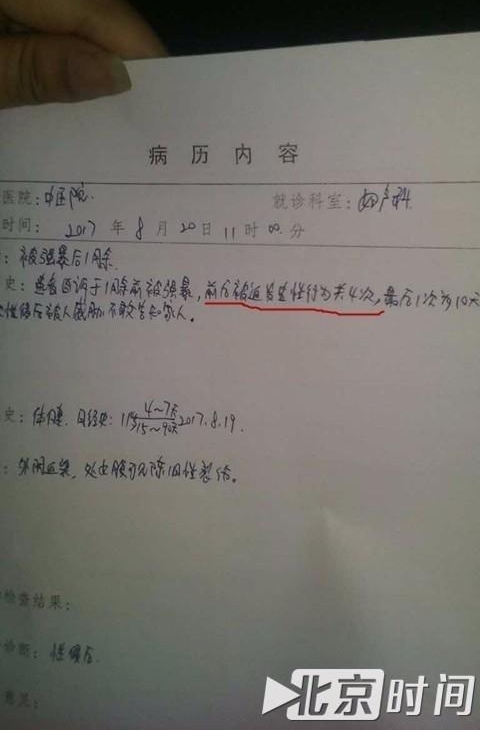 病历内容
医院：中医院 就诊科室：妇产科
时间：2017年8月20日11时00分
：被强暴后1月余.
史：患者自诉于1月余前被强暴，前后被迫发生性行为共4次，最后1次为10天
性侵后被人威胁不敢告知家人。
史：体健. 月经史：11岁 4～7天/15～90天 2017.8.19.
：外阴
检查结果：
诊断：性侵后.
意见：
北京时间